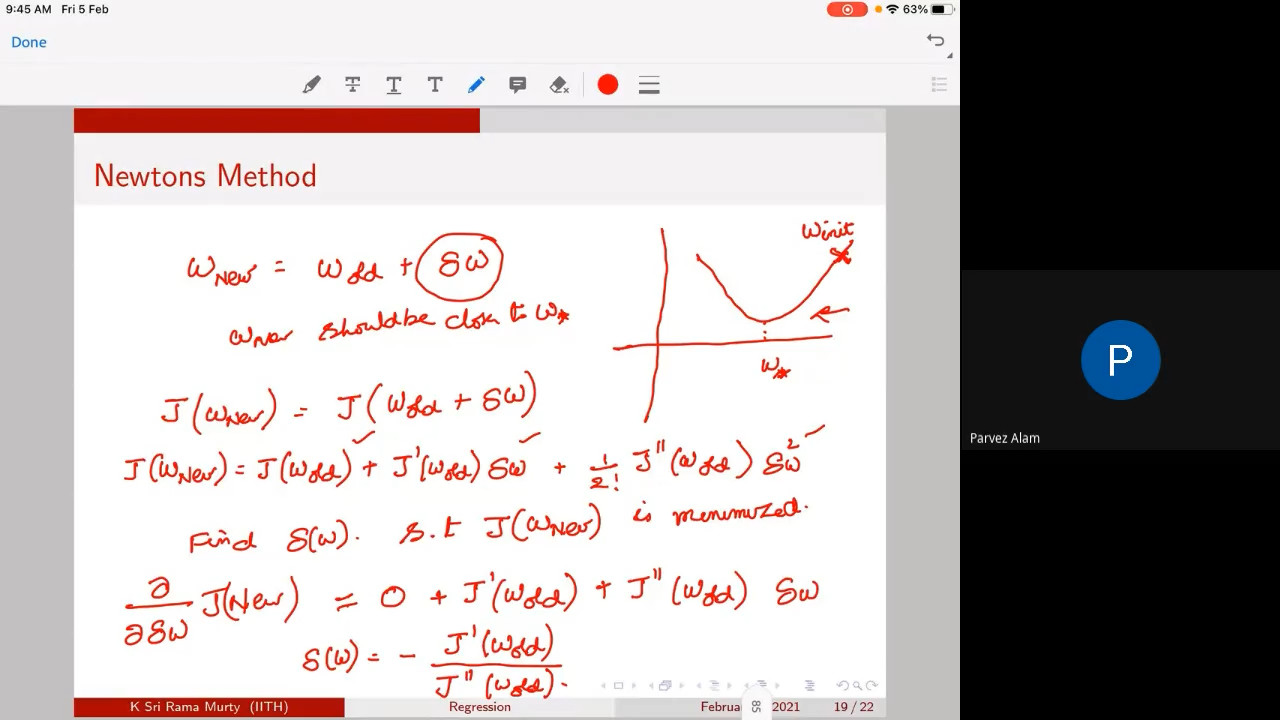 9:45 AM Fri 5 Feb
63%
Done
Newtons Method
Winit
W_New = W_old + δW
W_New should be close to W_*
W_*
J(W_New) = J(W_old + δW)
J(W_New) = J(W_old) + J'(W_old) δW + 1/2! J''(W_old) δW²
Find δ(W). s.t J(W_New) is minimized.
∂/∂δW J(New) = 0 + J'(W_old) + J''(W_old) δW
δ(W) = - J'(W_old) / J''(W_old).
K Sri Rama Murty (IITH) Regression Februa 2021 19 / 22
85
P
Parvez Alam